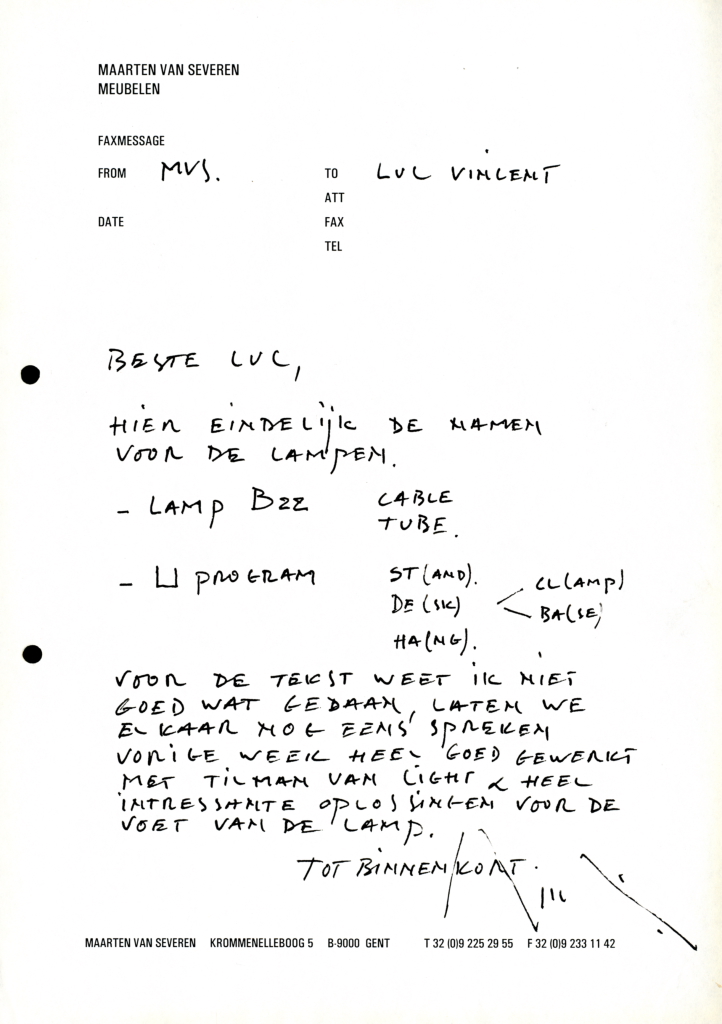 MAARTEN VAN SEVEREN
MEUBELEN
FAXMESSAGE
FROM MVS. TO LUC VINCENT
ATT
DATE FAX
TEL
BESTE LUC,
HIER EINDELIJK DE NAMEN
VOOR DE LAMPEN.
- LAMP B22 CABLE
TUBE.
- U PROGRAM ST(AND).
DE(SK) CL(AMP)
BA(SE)
HA(NG).
VOOR DE TEKST WEET IK NIET
GOED WAT GEDAAN, LATEN WE
ELKAAR NOG EENS SPREKEN
VORIGE WEEK HEEL GOED GEWERKT
MET TILMAN VAN LIGHT & HEEL
INTRESSANTE OPLOSSINGEN VOOR DE
VOET VAN DE LAMP.
TOT BINNENKORT.
MAARTEN VAN SEVEREN KROMMENELLEBOOG 5 B-9000 GENT T 32 (0)9 225 29 55 F 32 (0)9 233 11 42